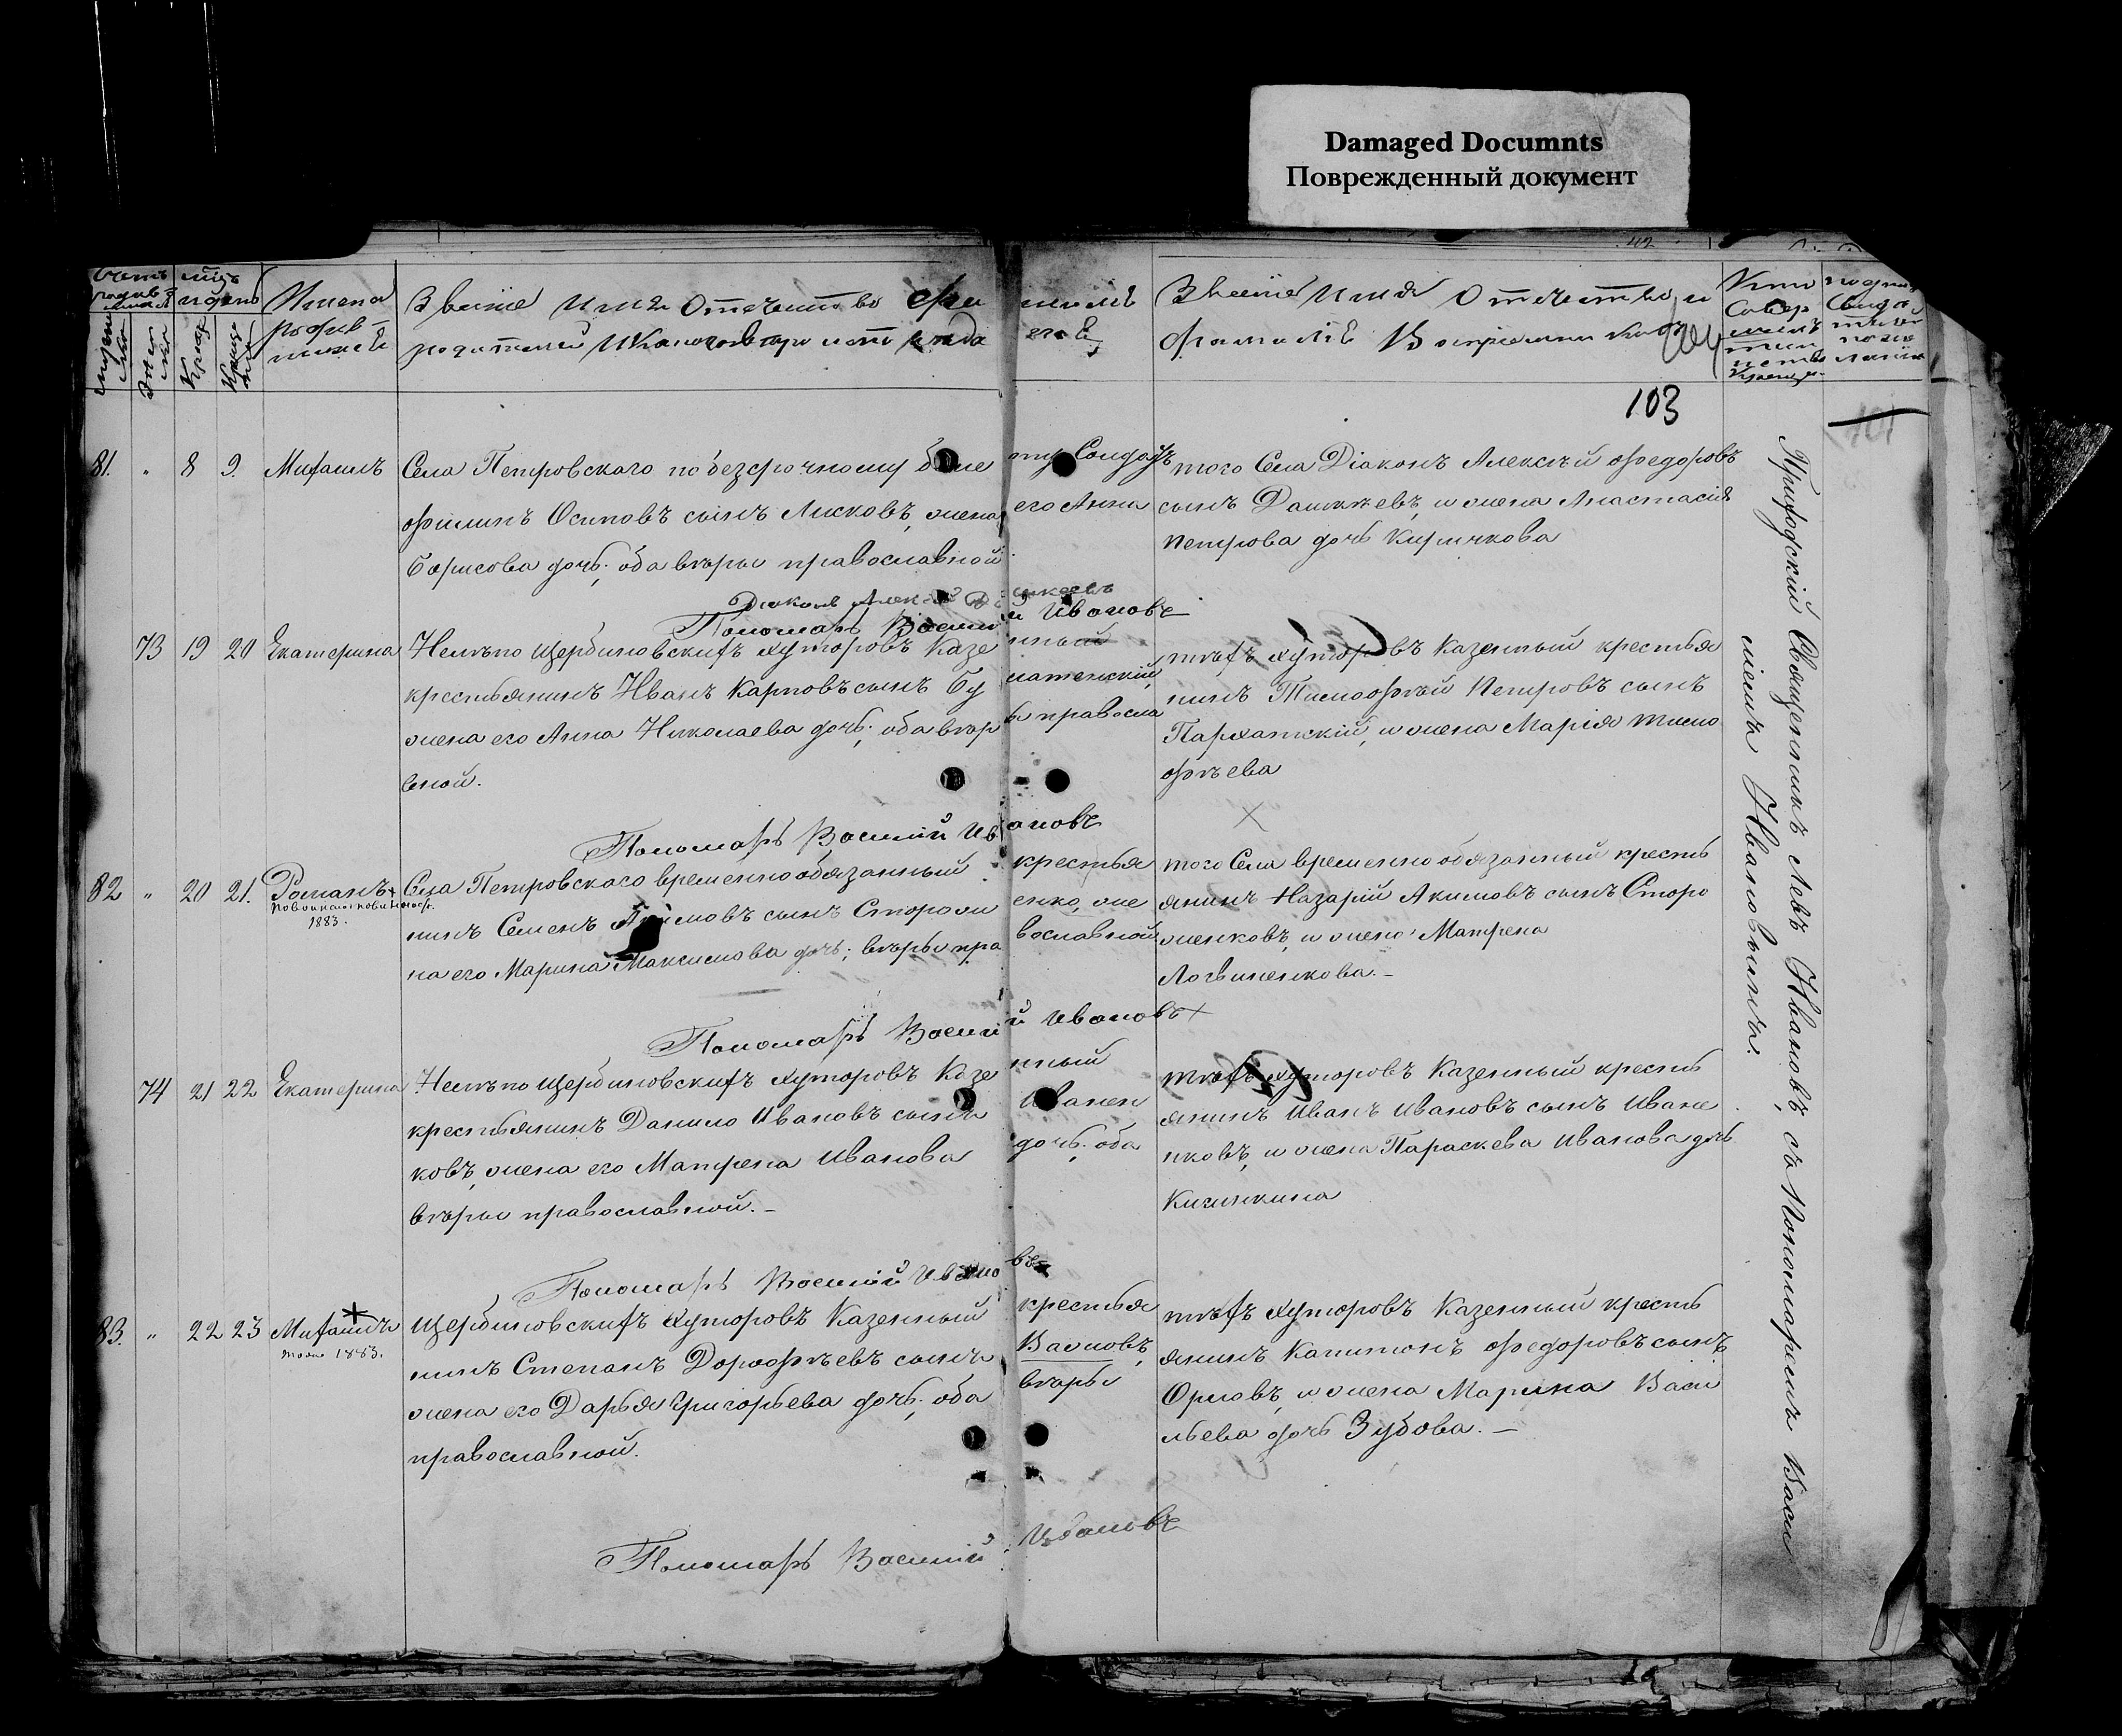 Damaged Documnts
Поврежденный документ
42
Имена
Званіе Имя Отечество Фа миліе
родителей И Какого веро исповеда
Званіе Имя Отечество и
фамиліе Воспріемниковъ
103
101
81. " 8 9. Михаилъ
Села Петровскаго по безсрочному биле ту Солдатъ
Филипъ Осиповъ сынъ Лисковъ, жена его Анна
Борисова дочь; оба вѣры православной
того Села Діаконъ Алексѣй Федоровъ
сынъ Дашкѣевъ, и жена Анастасія
Петрова дочь Киричкова
Діаконъ
Пономарь Василій Ивановъ
73 19 20 Екатерина
Нелѣпо Щербиновскихъ Хуторовъ Казе нный
крестьянинъ Иванъ Карповъ сынъ
жена его Анна Николаева дочь; оба вѣр ы правосла
вной.
тѣхъ Хуторовъ Казенный крестья
нинъ Тимофѣй Петровъ сынъ
Пархатскій, и жена Марія Тимо
фѣева
Пономарь Василій Ив ановъ
82 " 20 21. Романъ
1883.
Села Петровскаго временнообязанный крестья
нинъ Семенъ Акимовъ сынъ Сторож енко, же
на его Марина Максимова дочь; вѣры пра вославной.
того Села временнообязанный кресть
янинъ Назарій Акимовъ сынъ Сторо
женковъ, и жена Матрена
Логвиненкова. –
Пономарь Василі й Ивановъ
74 21 22 Екатерина
Нелѣпо Щербиновскихъ Хуторовъ Казе нный
крестьянинъ Данило Ивановъ сынъ Иванен
ковъ, жена его Матрена Иванова дочь; оба
вѣры православной. –
тѣхъ Хуторовъ Казенный кресть
янинъ Иванъ Ивановъ сынъ Иване
нковъ, и жена Параскева Иванова дочь
Кичинкина
Пономарь Василій Ивано въ
83. " 22 23 Михаилъ
тоже 1883.
Щербиновскихъ Хуторовъ Казенный крестья
нинъ Степанъ Дорофѣевъ сынъ
жена его Дарья Григорьева дочь; оба вѣры
православной.
тѣхъ Хуторовъ Казенный кресть
янинъ Капитонъ Федоровъ сынъ
Орловъ, и жена Марина Васи
льева дочь Зубова. –
Пономарь Василій Ивановъ
Приходскій Священникъ Левъ Ивановъ, съ Пономаремъ Васи
ліемъ Ивановымъ.